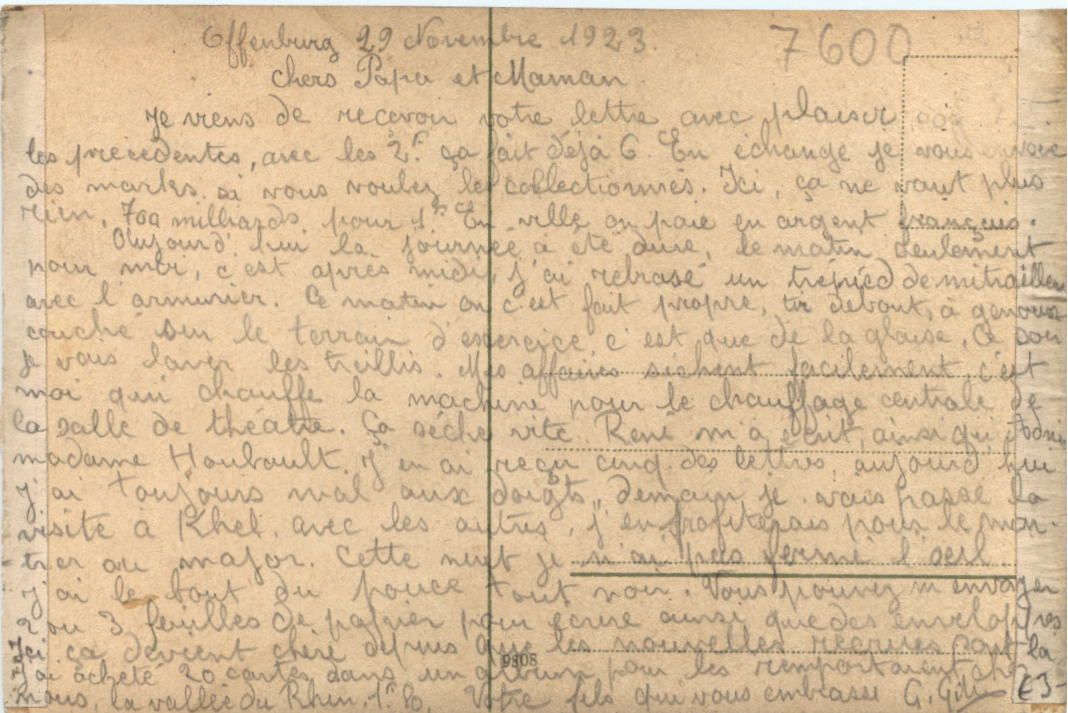 Offenburg 29 Novembre 1923.
7600
chers Papa et Maman.
Je viens de recevoir votre lettre avec plaisir,
les précédentes, avec les 2f. ça fait déjà 6. En échange je vous envoie
des marks, si vous voulez les collectionnés. Ici, ça ne vaut plus
rien, 700 milliards pour 1f. En ville on paie en argent français.
Aujourd'hui la journée a été dure, le matin seulement
pour moi, c'est après midi, j'ai rebrasé un trépied de mitrailleu
avec l'armurier. Ce matin on c'est fait propre, tir debout, à genoux
couché sur le terrain d'exercice c'est que de la glaise. Ce soir
je vais laver les treillis. Mes affaires sèchent facilement c'est
moi qui chauffe la machine pour le chauffage centrale de
la salle de théâtre. Ça sèche vite. René m'a écrit, ainsi qu'
madame Houbault. J'en ai reçu cinq des lettres, aujourd'hui
j'ai toujours mal aux doigts, demain je vais passé la
visite à Khel avec les autres, j'en profiterais pour le mon-
trer au major. Cette nuit je n'ai pas fermé l'oeil
j'ai le bout du pouce tout noir. Vous pouvez m'envoyer
2 ou 3 feuilles de papier pour écrire ainsi que des enveloppes
ici ça devient chère depuis que les nouvelles recrues sont la
J'ai acheté 20 cartes dans un album pour les
nous, la vallée du Rhin. 1f. 80. Votre fils qui vous embrasse G. Gil
9808
£3-